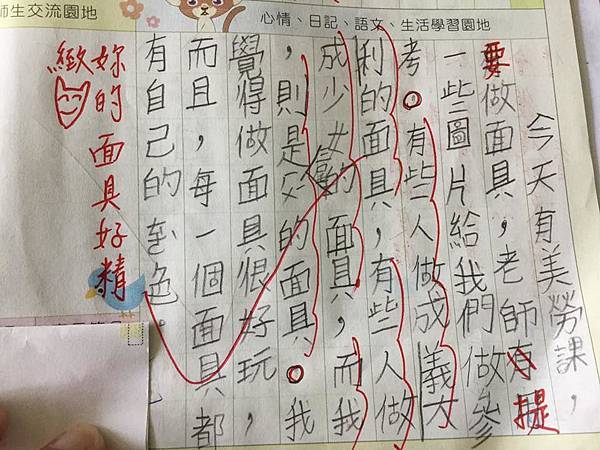 師生交流園地
心情、日記、語文、生活學習園地
今天有美勞課，
要做面具，老師有提
一些圖片給我們做參
考。有些人做成義大
利的面具，有些人做
成少女的面具，而我
，則是的面具。我
覺得做面具很好玩，
而且，每一個面具都
有自己的色。
妳的面具好精
緻